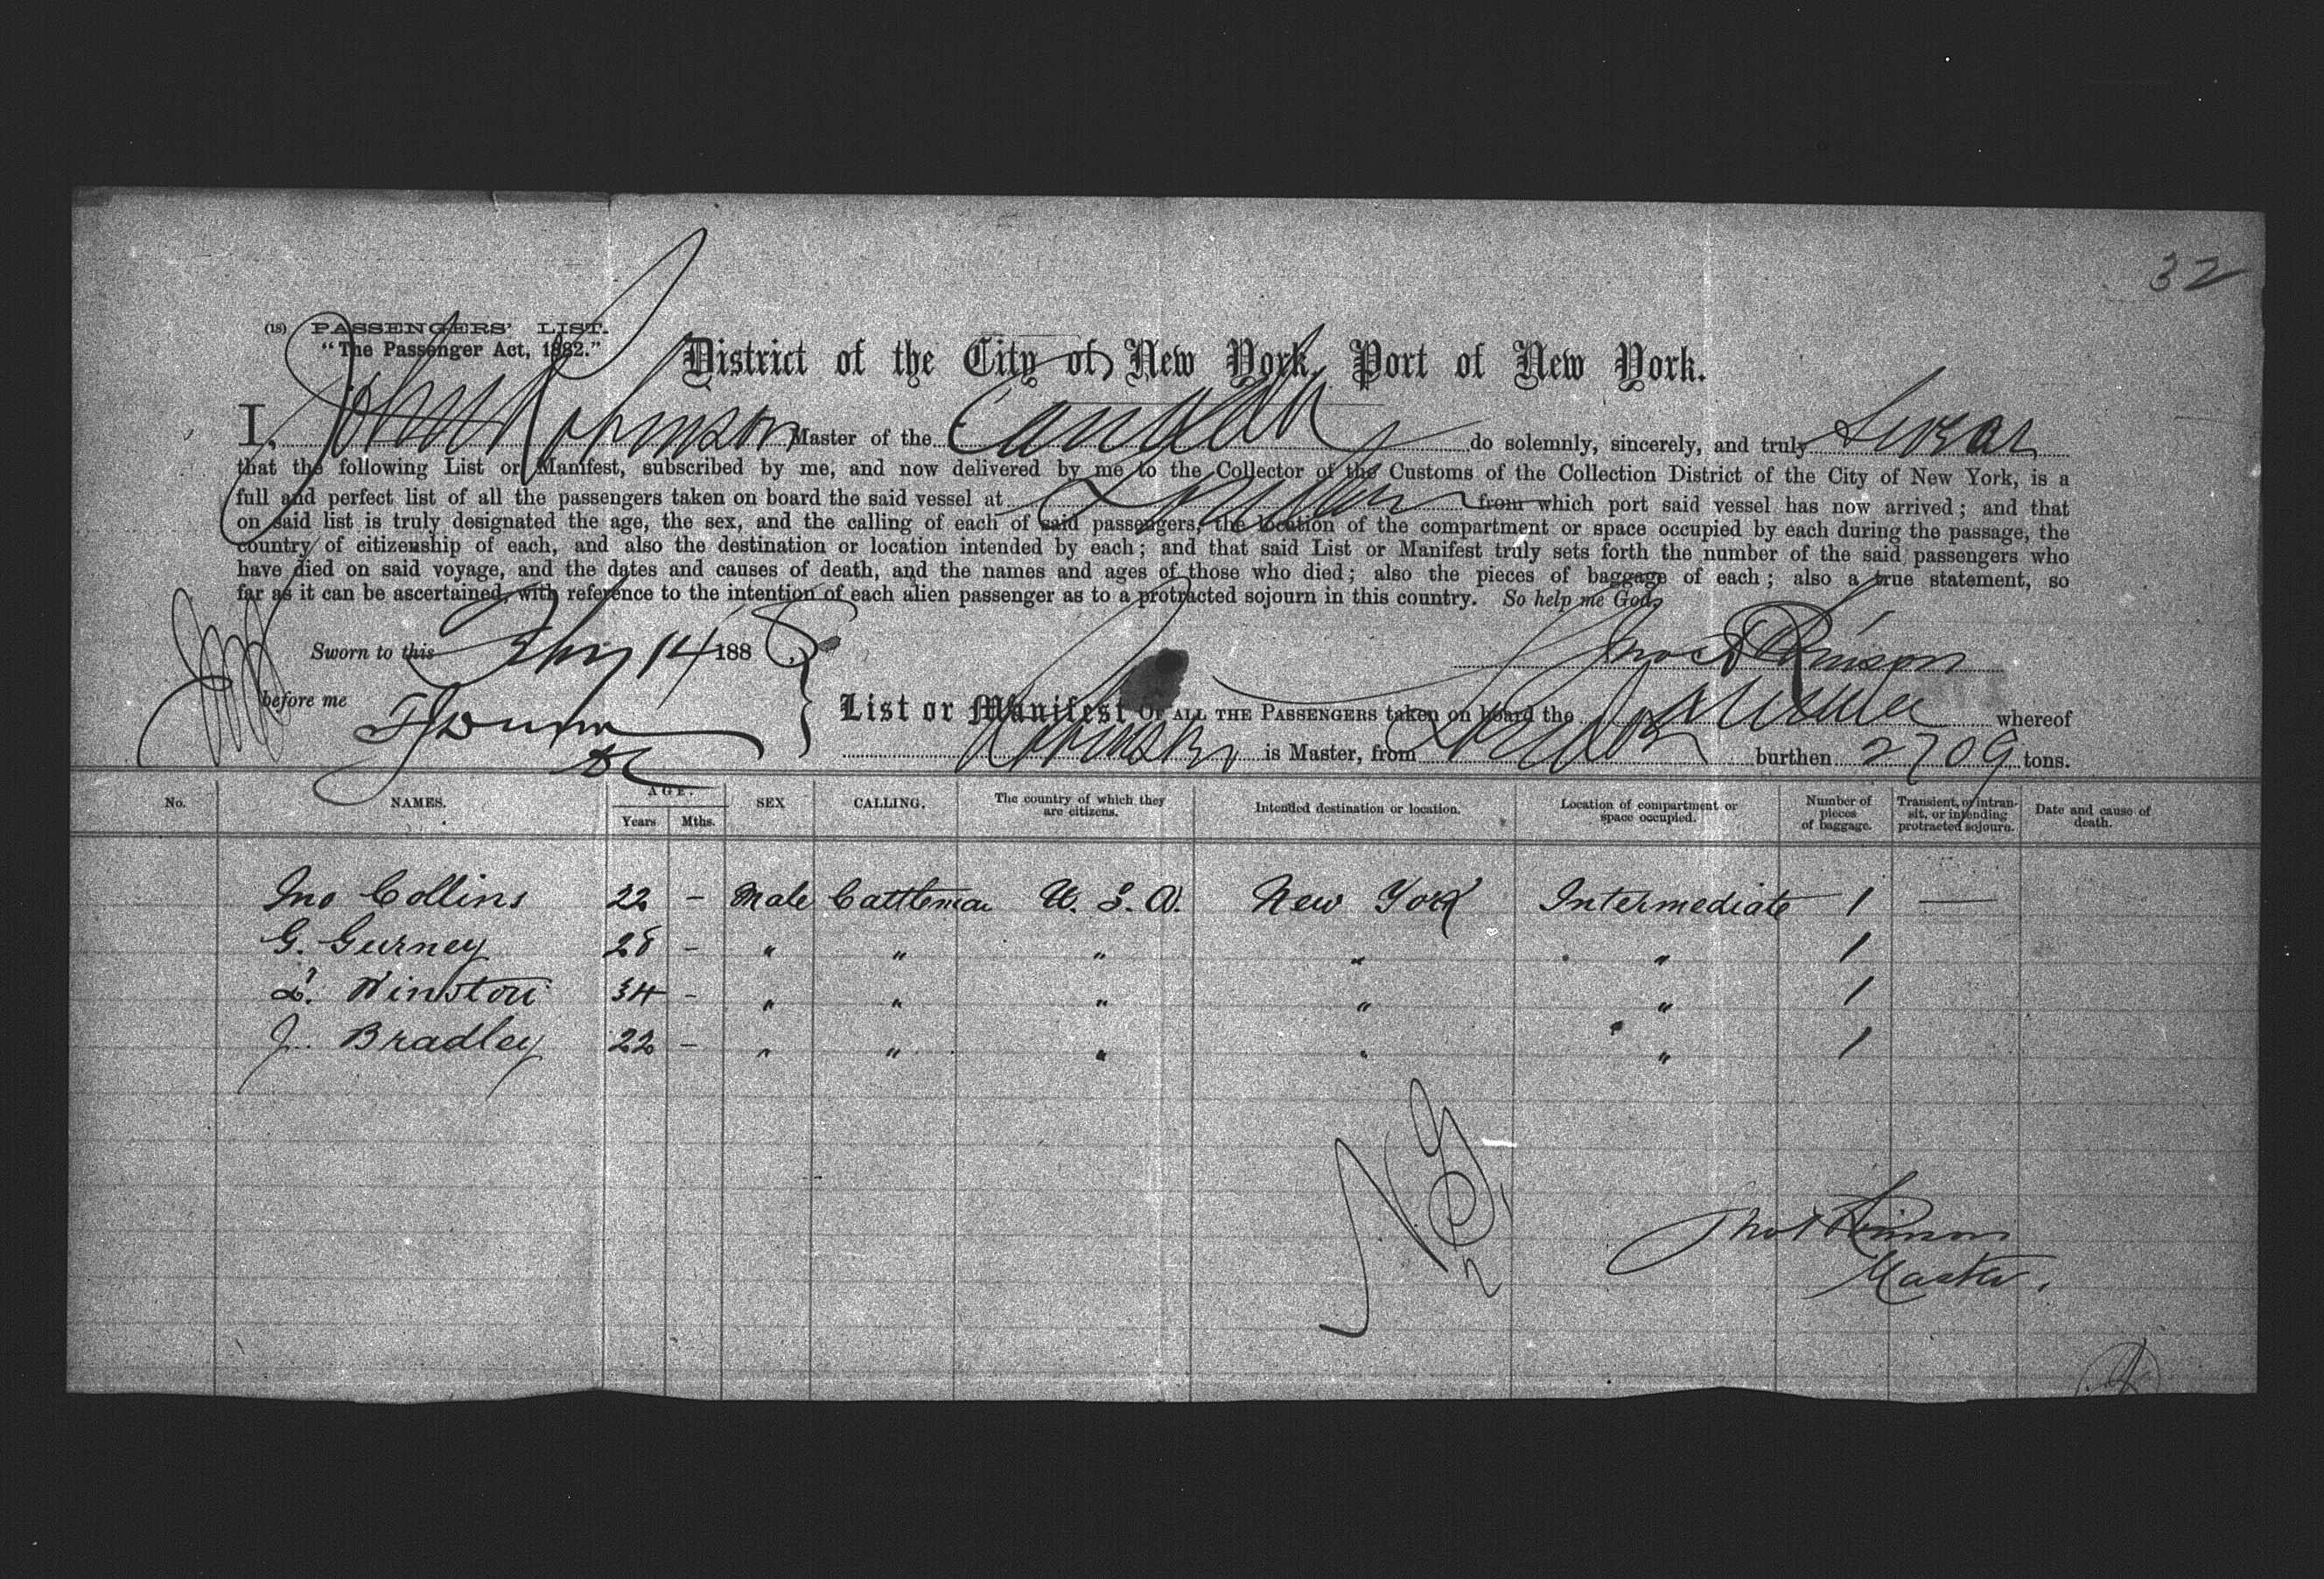 32
(18) PASSENGERS' LIST.
"The Passenger Act, 1882."
District of the City of New York, Port of New York.
I, Master of the do solemnly, sincerely, and truly swear
that the following List or Manifest, subscribed by me, and now delivered by me to the Collector of the Customs of the Collection District of the City of New York, is a
full and perfect list of all the passengers taken on board the said vessel at London from which port said vessel has now arrived; and that
on said list is truly designated the age, the sex, and the calling of each of said passengers, the location of the compartment or space occupied by each during the passage, the
country of citizenship of each, and also the destination or location intended by each; and that said List or Manifest truly sets forth the number of the said passengers who
have died on said voyage, and the dates and causes of death, and the names and ages of those who died; also the pieces of baggage of each; also a true statement, so
far as it can be ascertained, with reference to the intention of each alien passenger as to a protracted sojourn in this country. So help me God.
Sworn to this 14 188
before me
List or Manifest OF ALL THE PASSENGERS taken on board the whereof
is Master, from London burthen 2709 tons.
No. NAMES. AGE. Years Mths. SEX CALLING. The country of which they are citizens. Intended destination or location. Location of compartment or space occupied. Number of pieces of baggage. Transient, or intransit, or intending protracted sojourn. Date and cause of death.
Jno Collins 22 – Male Cattleman U. S. A. New York Intermediate 1 —
G. Gurney 28 – " " " " " 1
Winston 34 – " " " " " 1
J. Bradley 22 – " " " " " 1
Master.